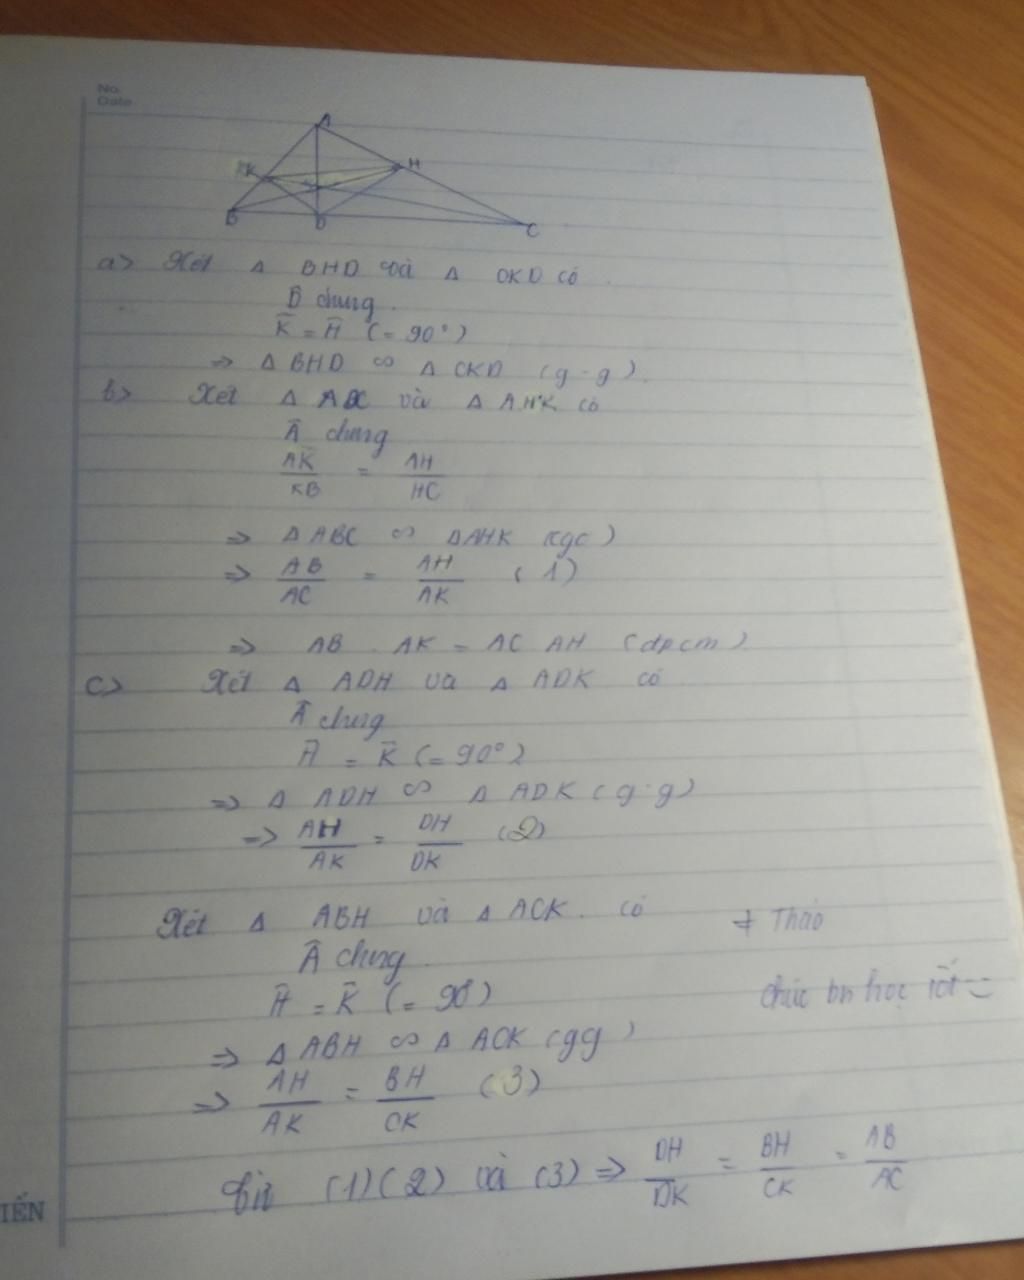 No.
Date
A
K H
B D C
a> Xét Δ BHD và Δ CKD có
D̂ chung.
K̂ = Ĥ (= 90°)
=> Δ BHD ∽ Δ CKD (g.g).
b> Xét Δ ABC và Δ AHK có
Â chung
AK/KB = AH/HC
=> Δ ABC ∽ ΔAHK (cgc)
=> AB/AC = AH/AK (1)
=> AB . AK = AC AH (dpcm).
c> Xét Δ ADH và Δ ADK có
Â chung
Ĥ = K̂ (= 90°)
=> Δ ADH ∽ Δ ADK (g.g)
=> AH/AK = DH/DK (2)
Xét Δ ABH và Δ ACK. có
Â chung.
Ĥ = K̂ (= 90°)
=> Δ ABH ∽ Δ ACK (gg)
=> AH/AK = BH/CK (3)
Từ (1)(2) và (3) => DH/DK = BH/CK = AB/AC
# Thảo
chúc bn học tốt =
IẾN